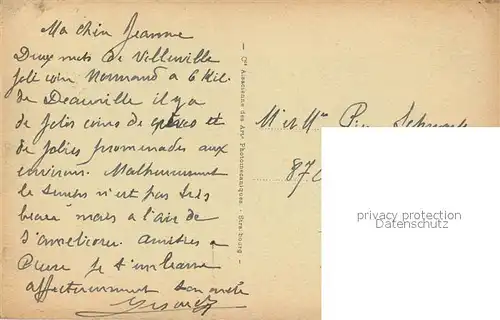 Ma chère Jeanne
Deux mots de Villerville
joli coin Normand a 6 Kil.
de Deauville il y a
de jolis coins de et
de jolies promenades aux
environs. Malheureusement
le temps n'est pas très
beau mais a l'air de
s'améliorer. amitiés a
Pierre je t'embrasse
affectueusement ton amie
Cie Alsacienne des Arts Photomécaniques - Strasbourg
M et Mme
87
privacy protection
Datenschutz